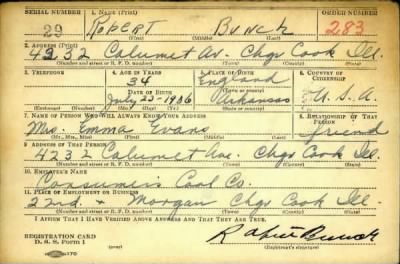 SERIAL NUMBER 1. NAME (Print) ORDER NUMBER
29 ROBERT BUNCH 283
(First) (Middle) (Last)
2. ADDRESS (Print)
4232 Calumet Av. Chgo Cook Ill.
(Number and street or R. F. D. number) (Town) (County) (State)
3. TELEPHONE 4. AGE IN YEARS 5. PLACE OF BIRTH 6. COUNTRY OF CITIZENSHIP
34 England
DATE OF BIRTH (Town or county)
July 25-1906 Arkansas U.S.A.
(Exchange) (Number) (Mo.) (Day) (Yr.) (State or country)
7. NAME OF PERSON WHO WILL ALWAYS KNOW YOUR ADDRESS 8. RELATIONSHIP OF THAT PERSON
Mrs. Emma Evans friend
(Mr., Mrs., Miss) (First) (Middle) (Last)
9. ADDRESS OF THAT PERSON
4232 Calumet Ave. Chgo Cook Ill.
(Number and street or R. F. D. number) (Town) (County) (State)
10. EMPLOYER'S NAME
Consumers Coal Co.
11. PLACE OF EMPLOYMENT OR BUSINESS
22nd. + Morgan Chgo Cook Ill.
(Number and street or R. F. D. number) (Town) (County) (State)
I AFFIRM THAT I HAVE VERIFIED ABOVE ANSWERS AND THAT THEY ARE TRUE.
REGISTRATION CARD
D. S. S. Form 1 Robert Bunch
(Registrant's signature)